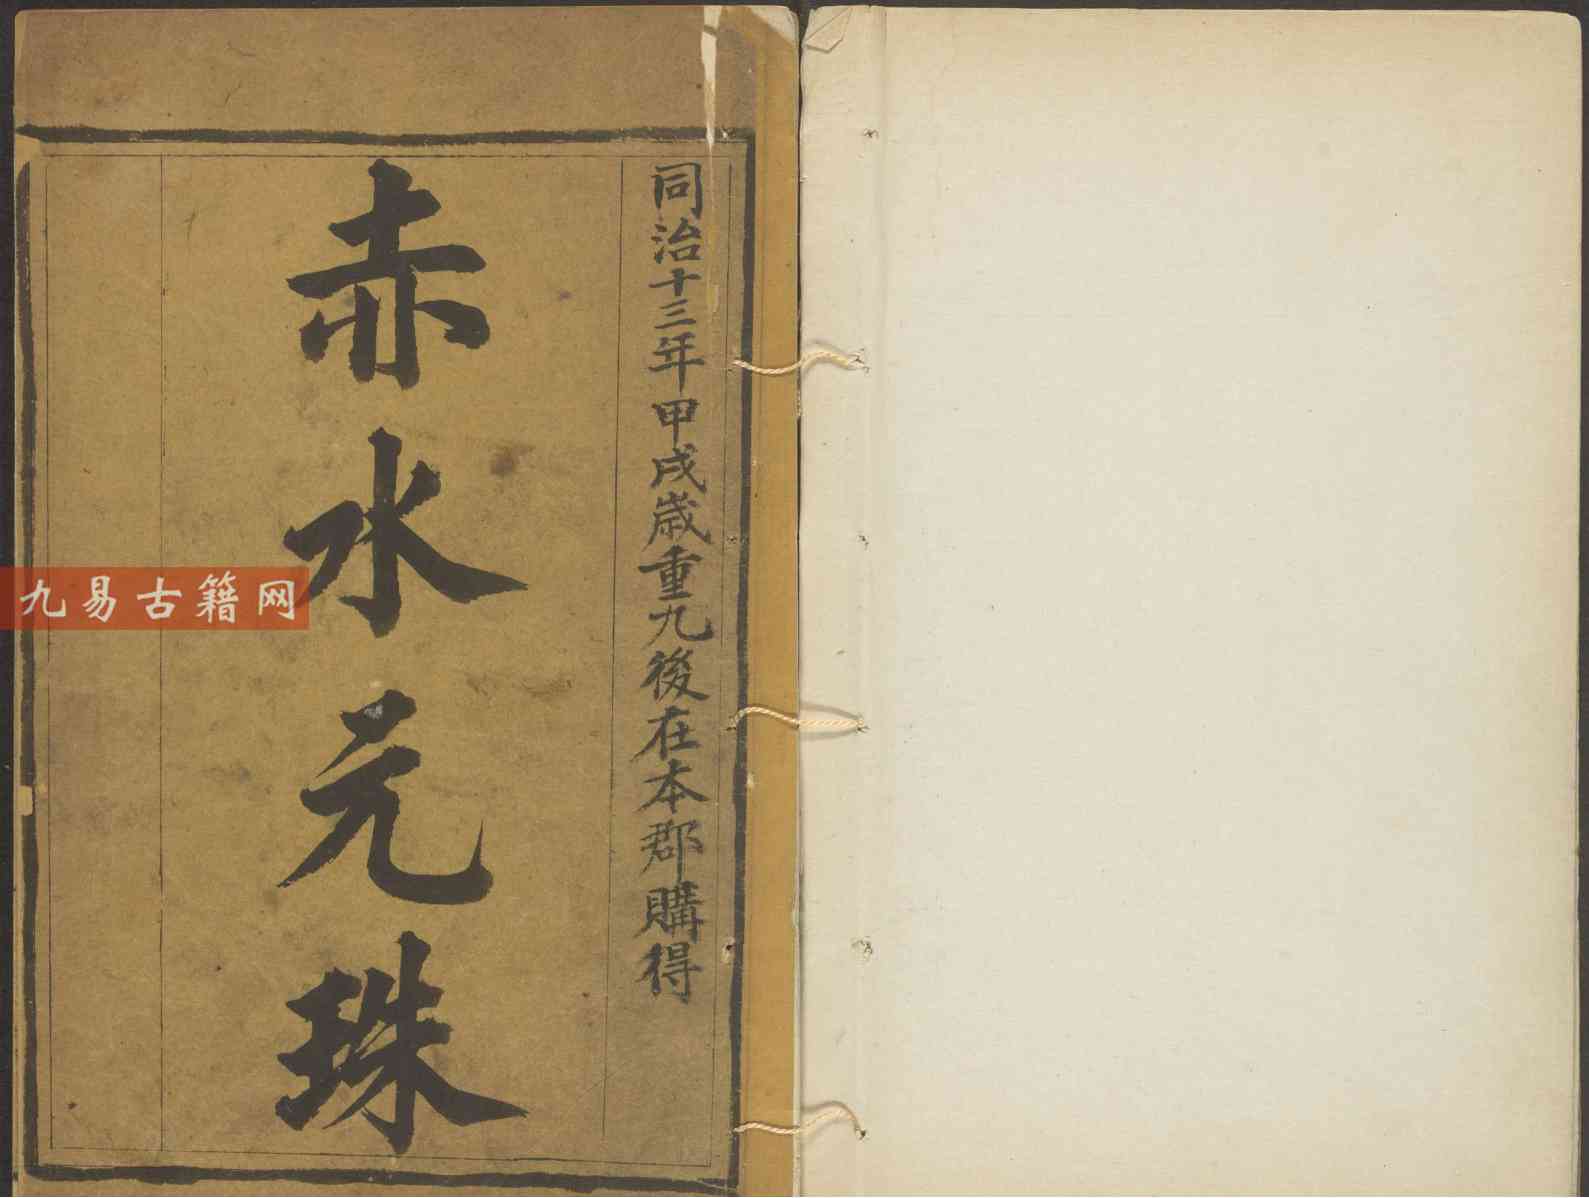 同治十三年甲戌歲重九後在本郡購得
赤水元珠
九易古籍网